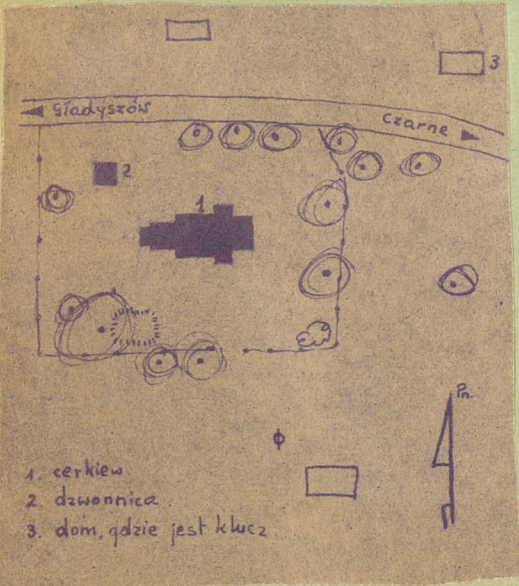 3
Gładyszów
Czarne
2
1
Pn.
1. cerkiew
2. dzwonnica
3. dom, gdzie jest klucz